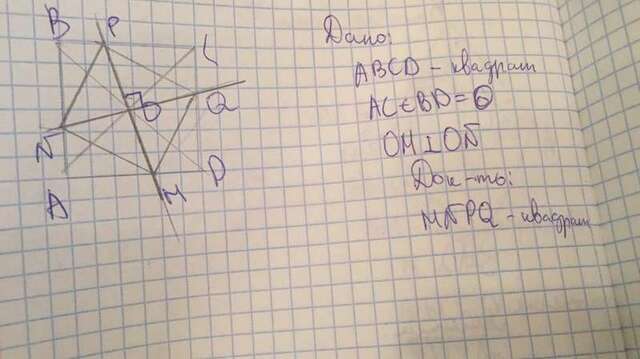 B P C
O Q
N
A M D
Дано:
ABCD - квадрат
AC ∈ BD = O
OM ⊥ ON
Док-ть:
MNPQ - квадрат